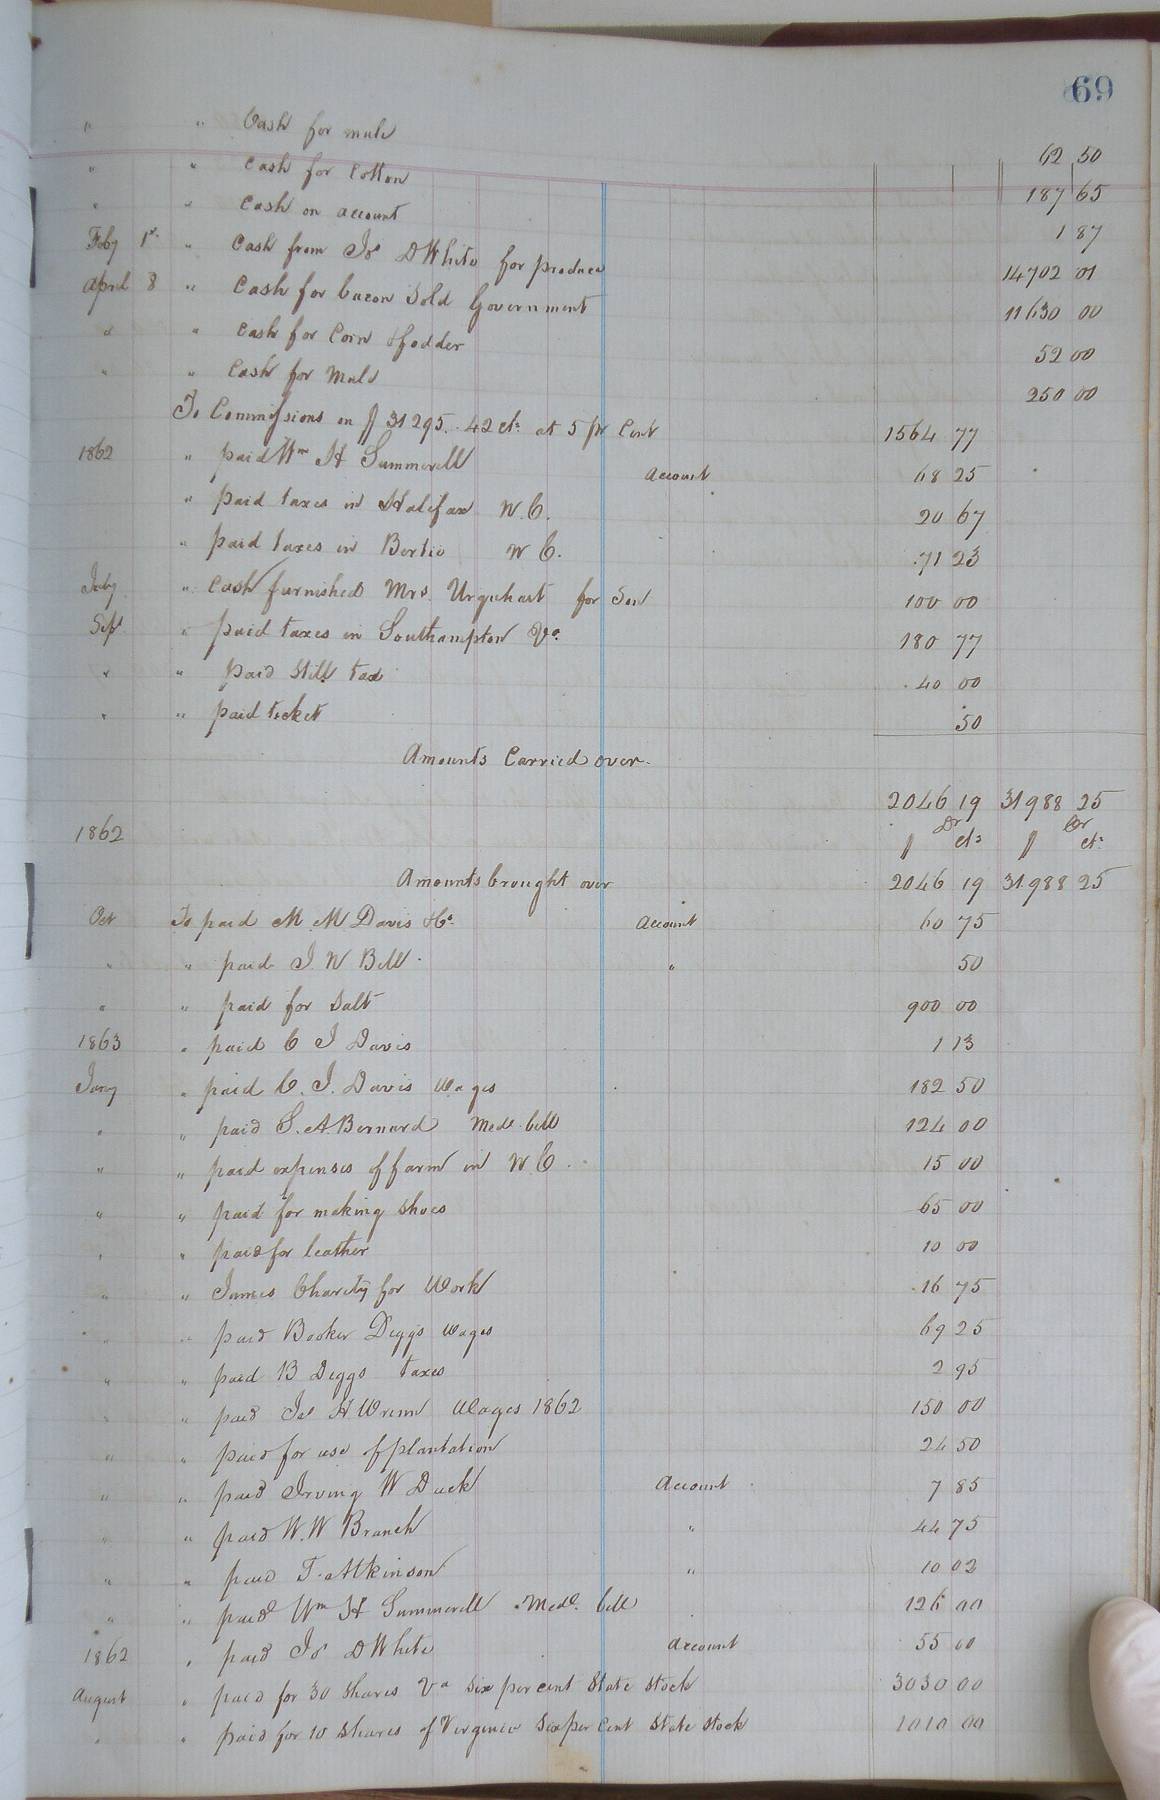 69
" " Cash for mule 62 50
" " Cash for Cotton 187 65
" " Cash on account 1 87
Feby 1st " Cash from Js D White for produce 14702 01
April 8 " Cash for bacon Sold Government 11630 00
" " Cash for Corn & fodder 52 00
" " Cash for Mule 250 00
To Commissions on $ 31295.42 cts at 5 pr Cent 1564 77
1862 " paid Wm H Summerell Account 68 25
" paid taxes in Halifax N.C. 20 67
" paid taxes in Bertie N C. 71 23
July " Cash furnished Mrs. Urquhart for Son 100 00
Sept " paid taxes in Southampton Va. 180 77
" " paid Still tax 40 00
" " paid ticket 50
Amounts Carried over
2046 19 31988 25
1862 Dr Cr
$ cts $ cts
Amounts brought over 2046 19 31988 25
Oct To paid M. M Davis & Co. Account 60 75
" " paid J. W Bell " 50
" " paid for Salt 900 00
1863 " paid C J Davis 1 13
Jany " paid C. J. Davis Wages 182 50
" " paid S. A. Bernard Medl. bill 124 00
" " paid expenses of farm in N C. 15 00
" " paid for making shoes 65 00
" " paid for leather 10 00
" " James Charity for Work 16 75
" " paid Booker Diggs wages 69 25
" " paid B Diggs taxes 2 95
" " paid Js H Wrenn Wages 1862 150 00
" " paid for use of plantation 24 50
" " paid Irving W Duck Account 7 85
" " paid W. W Branch " 44 75
" " paid T. Atkinson " 10 02
" " paid Wm H Summerell Medl. bill 126 00
1862 " paid Js D White Account 55 00
August " paid for 30 shares Va Six per cent State stock 3030 00
" " paid for 10 shares of Virginia Six per Cent State stock 1010 00